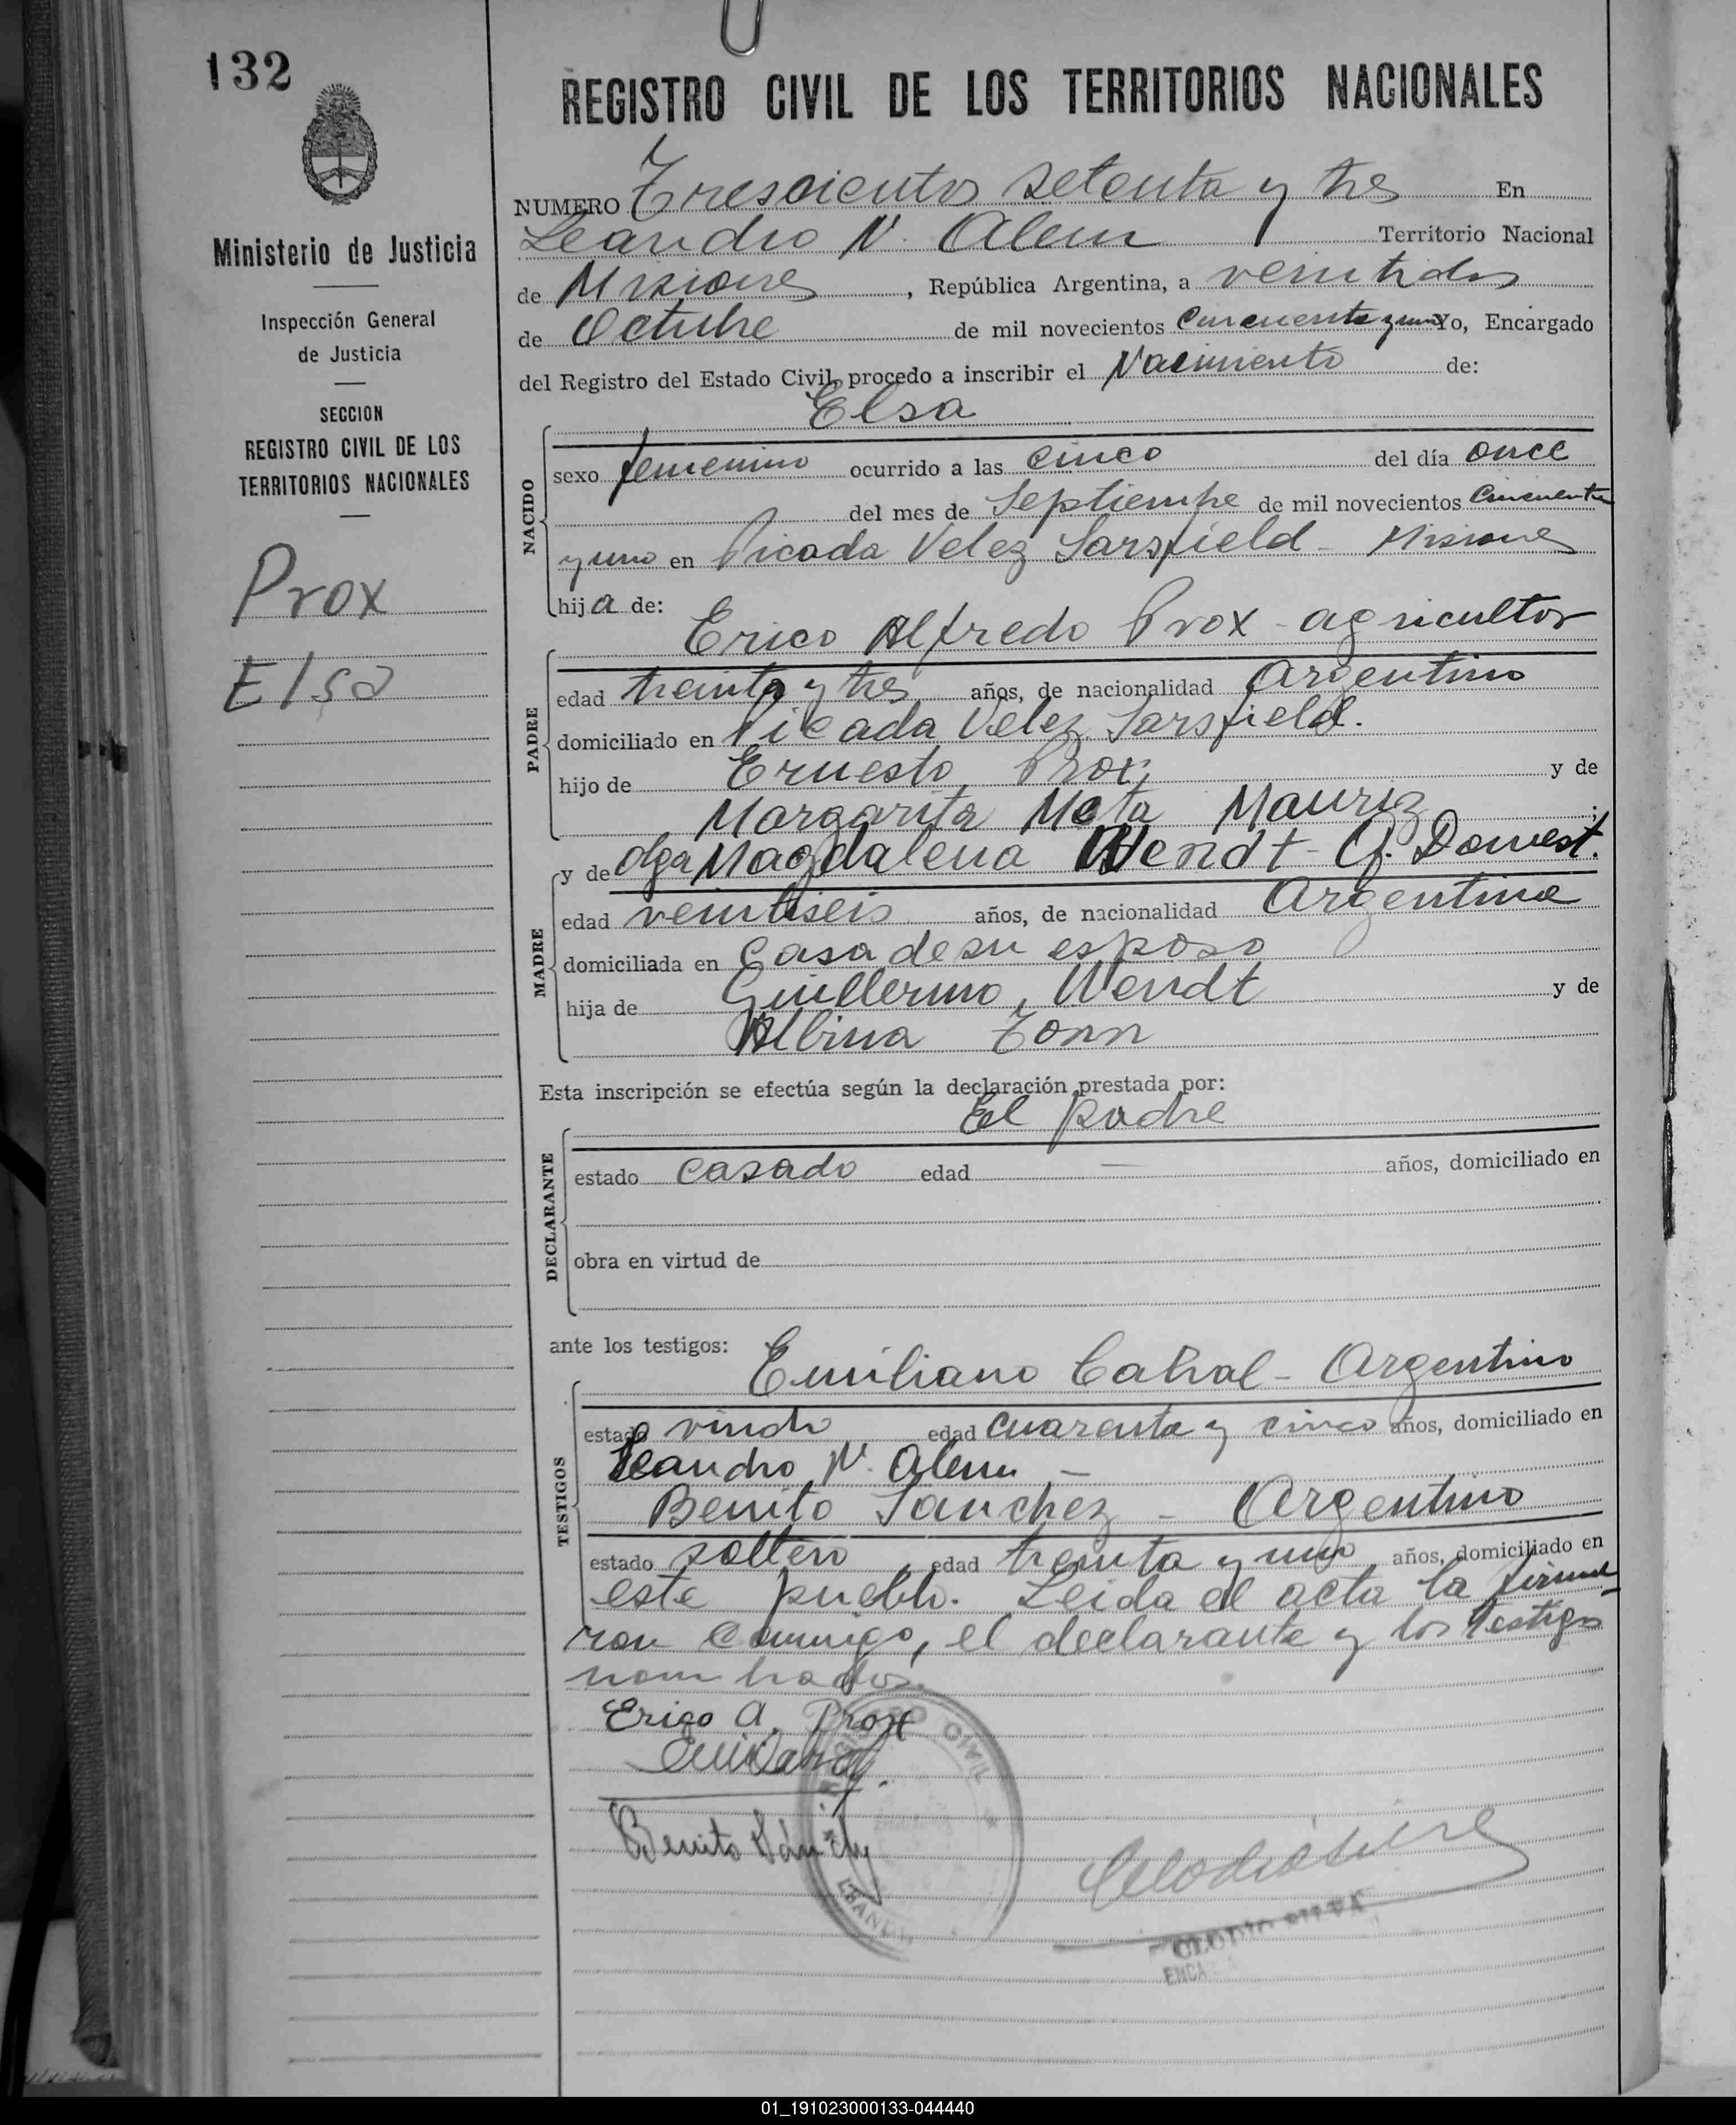 132
Ministerio de Justicia
Inspección General
de Justicia
SECCION
REGISTRO CIVIL DE LOS
TERRITORIOS NACIONALES
Prox
Elsa
REGISTRO CIVIL DE LOS TERRITORIOS NACIONALES
NUMERO Trescientos setenta y tres En
Leandro N. Alem Territorio Nacional
de Misiones, República Argentina, a veintidos
de Octubre de mil novecientos Cincuenta y uno Yo, Encargado
del Registro del Estado Civil, procedo a inscribir el Nacimiento de:
Elsa
NACIDO
sexo femenino ocurrido a las cinco del día once
del mes de Septiembre de mil novecientos Cincuenta
y uno en Picada Velez Sarsfield - Misiones
hija de:
Erico Alfredo Prox - agricultor
PADRE
edad treinta y tres años, de nacionalidad Argentino
domiciliado en Picada Velez Sarsfield.
hijo de Ernesto Prox y de
Margarita Meta Mauriz;
y de Olga Magdalena Wendt - Q. Domest.
MADRE
edad veintiseis años, de nacionalidad Argentina
domiciliada en Casa de su esposo
hija de Guillermo Wendt y de
Albina Tonn
Esta inscripción se efectúa según la declaración prestada por:
El padre
DECLARANTE
estado casado edad — años, domiciliado en
obra en virtud de
ante los testigos:
Emiliano Cabral - Argentino
TESTIGOS
estado viudo edad cuarenta y cinco años, domiciliado en
Leandro N. Alem -
Benito Sanchez - Argentino
estado soltero, edad treinta y uno años, domiciliado en
este pueblo. Leida el acta la firma-
ron conmigo, el declarante y los testigos
nombrados.
Erico A. Prox
Benito Sánchez
REGISTRO CIVIL
LEANDRO
CLODIO SILVA
ENCA
01_191023000133-044440